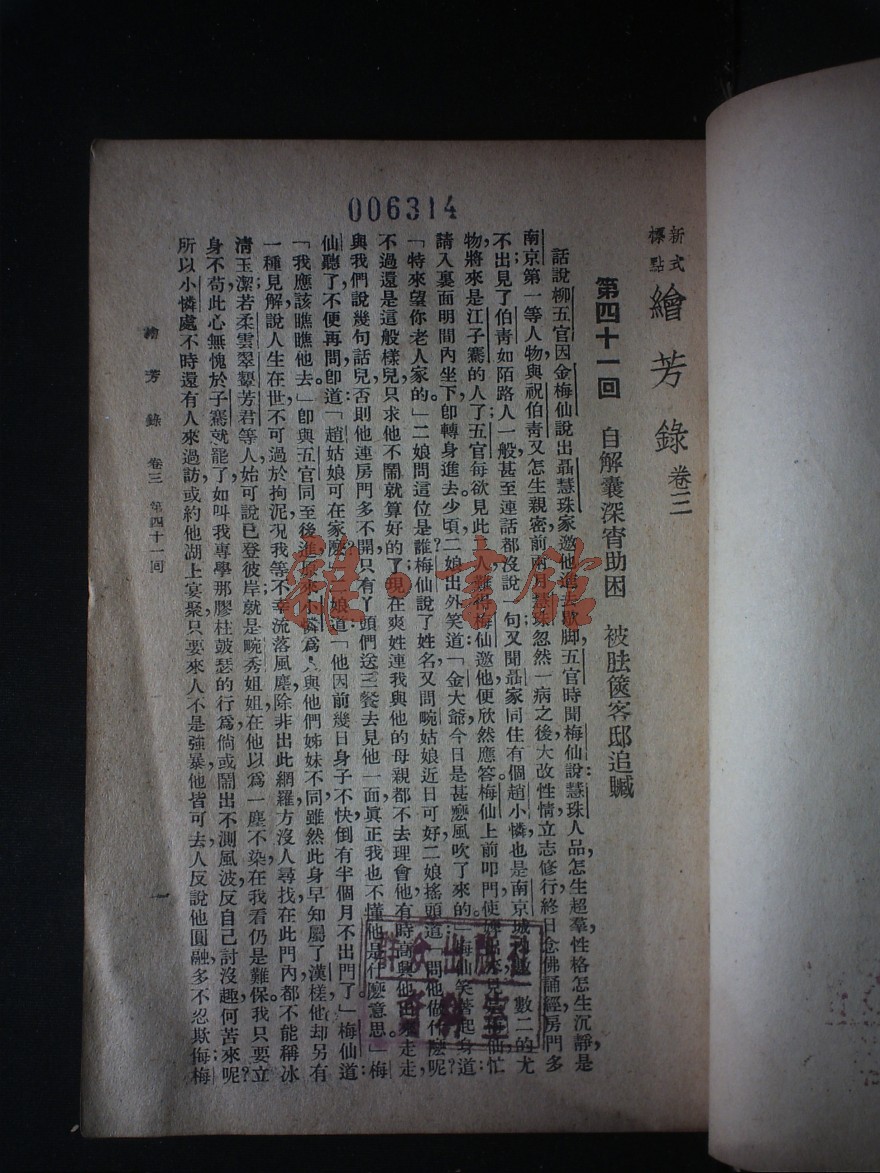 006314
新式標點 繪芳錄 卷三
第四十一回 自解囊深宵助困 被胠篋客邸追贓
話說柳五官因金梅仙說出聶慧珠家邀他進去歇脚，五官時聞梅仙說：慧珠人品怎生超羣，性格怎生沉靜，是
南京第一等人物，與祝伯靑又怎生親密，前兩月慧珠忽然一病之後，大改性情，立志修行，終日念佛誦經，房門多
不出；見了伯靑如陌路人一般，甚至連話都沒說一句。又聞聶家同住有個趙小憐，也是南京城數一數二的尤
物，將來是江子騫的人了。五官每欲見此人，難得梅仙邀他，便欣然應答。梅仙上前叩門，使婢出來見是梅仙，忙
請入裏面明間內坐下，卽轉身進去。少頃，二娘出外笑道：「金大爺今日是甚麽風吹了來的？」梅仙笑著起身道：
「特來望你老人家的。」二娘問這位是誰，梅仙說了姓名，又問畹姑娘近日可好，二娘搖頭道：「問他做什麽呢？
不過還是這般樣兒，只求他不鬧就算好的了。現在爽姓連我與他的母親都不去理會他，有時高興他出來走走，
與我們說幾句話兒，否則他連房門多不開，只有丫頭們送三餐去見他一面，眞正我也不懂他是什麽意思。」梅
仙聽了，不便再問，卽道：「趙姑娘可在家麽？」二娘道：「他因前幾日身子不快，倒有半個月不出門了。」梅仙道：
「我應該瞧瞧他去。」卽與五官同至後進。原來小憐爲人與他們姊妹不同，雖然此身早知屬了漢槎，他却另有
一種見解，說人生在世，不可過於拘泥，况我等不幸流落風塵，除非出此網羅，方沒人尋找，在此門內，都不能稱冰
淸玉潔；若柔雲翠顰芳君等人，始可說已登彼岸，就是畹秀姐姐，在他以爲一塵不染，在我看仍是難保。我只要立
身不苟，此心無愧於子騫就罷了，如叫我專學那膠柱皷瑟的行爲，倘或鬧出不測風波，反自己討沒趣，何苦來呢？
所以小憐處不時還有人來過訪，或約他湖上宴聚，只要來人不是强暴，他皆可去，人反說他圓融，多不忍欺侮。梅
繪芳錄 卷三 第四十一回
一
群众出版社
資料室
雜·書館